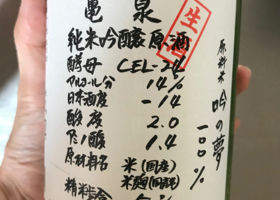 亀泉
生酒
純米吟醸原酒
酵母 CEL-24
アルコール分 14%
日本酒度 -14
酸度 2.0
アミノ酸 1.4
原材料名 米(国産)
米麹(国産米)
精米歩合
原料米 吟の夢 一〇〇%